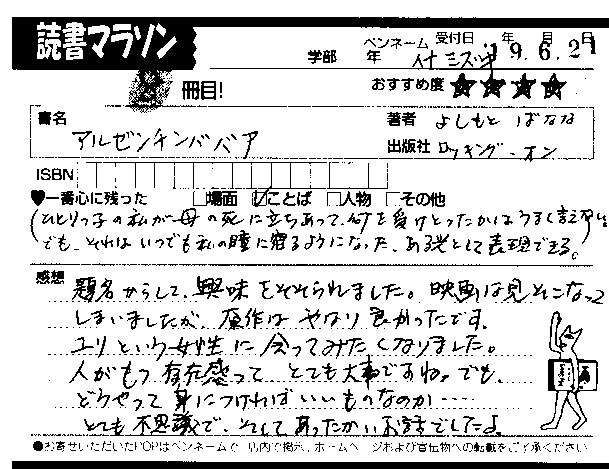 読書マラソン
学部 年 ペンネーム 受付日 年 月 日
'19.6.21
冊目!
おすすめ度 ★★★★
書名
アルゼンチンババア
著者 よしもと ばなな
出版社 ロッキング・オン
ISBN
♥一番心に残った □場面 ☑ことば □人物 □その他
(ひとりっ子の私が母の死に立ちあって、何を受けとったかはうまく言えない。
でも、それはいつでも私の瞳に宿るようになった、ある光として表現できる。)
感想
題名からして、興味をそそられました。映画は見そこなって
しまいましたが、原作はやはり良かったです。
ユリという女性に会ってみたくなりました。
人がもつ存在感って とても大事ですね。でも、
どうやって身につければいいものなのか……
とても不思議で、そしてあったかいお話でしたよ。
●お寄せいただいたPOPはペンネームで、店内で掲示、ホームページおよび宣伝物への転載をご了承ください